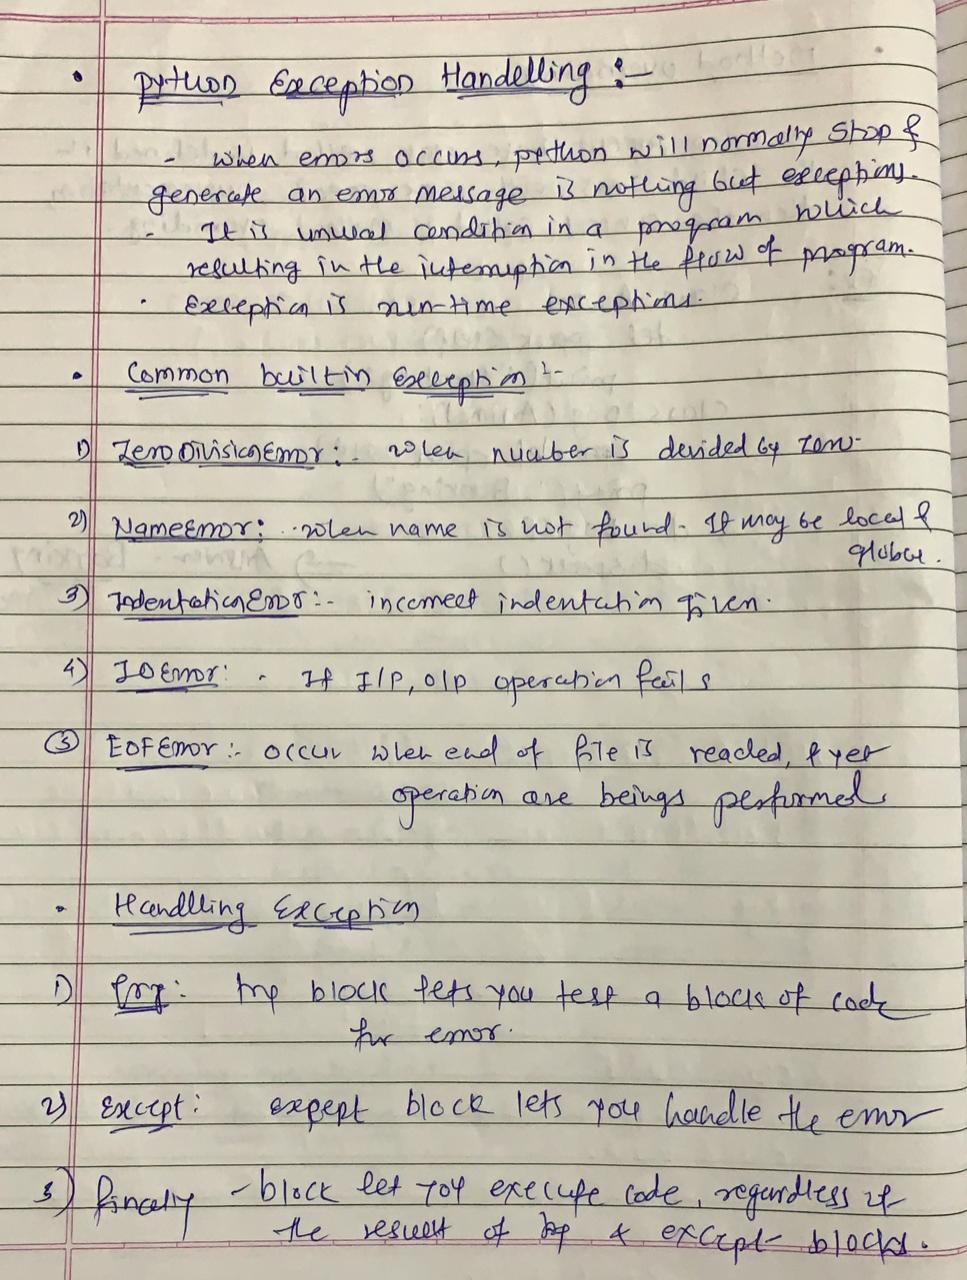 • Python Exception Handelling :-
- when errors occurs, python will normally stop &
generate an error message is nothing but exceptions.
- It is unusual condition in a program which
resulting in the interruption in the flow of program.
• Exception is run-time exceptions.
• Common builtin Exception :-
1) ZeroDivisionError :- when number is devided by zero-
2) NameError: when name is not found. It may be local &
globle.
3) IndentationError :- incorrect indentation given.
4) IOError: . If I/P, O/P operation fails
5) EOFError :- occur when end of file is reached, & yet
operation are beings performed.
• Handlling Exception
1) Try: try block lets you test a block of code
for error.
2) Except: expept block lets you handle the error
3) finally - block let you execute code, regardless if
the result of try & except blocks.